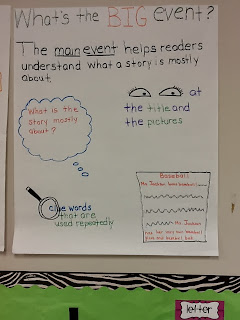 What's the BIG event?
The main event helps readers
understand what a story is mostly
about.
What is the
story mostly
about?
at
the title and
the pictures
clue words
that are
used repeatedly
Baseball
Ms. Jackson
letter